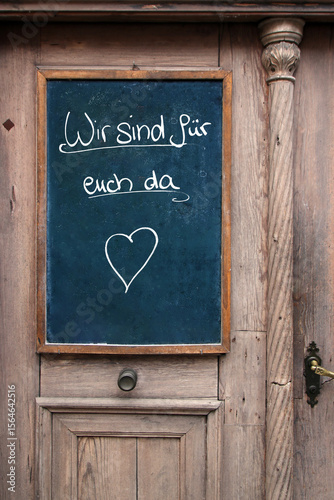 Wir sind für
euch da
Adobe Stock | #1564642516